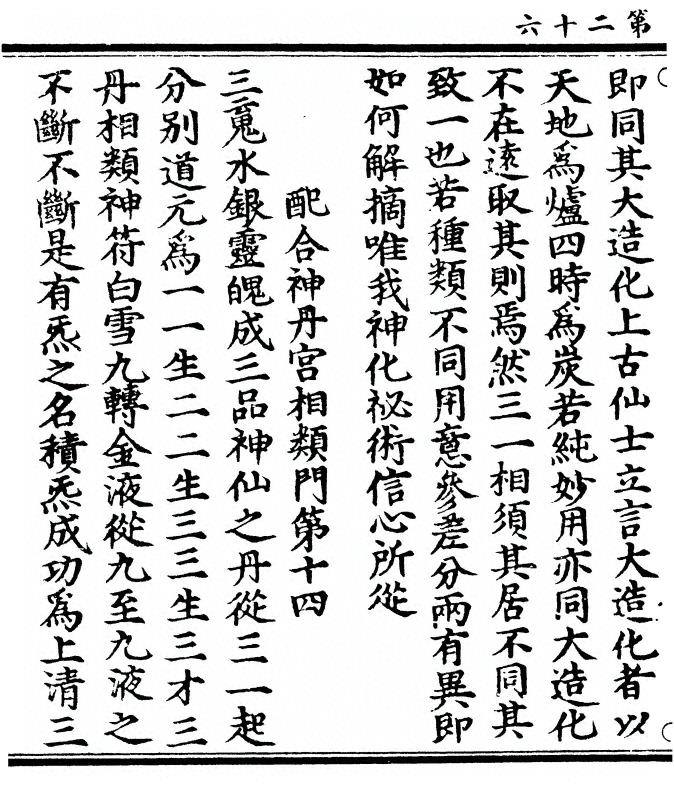 第二十六
即同其大造化上古仙士立言大造化者以
天地爲爐四時爲炭若純妙用亦同大造化
不在遠取其則焉然三一相須其居不同其
致一也若種類不同用意參差分兩有異即
如何解摘唯我神化祕術信心所從
配合神丹宮相類門第十四
三䰟水銀靈魄成三品神仙之丹從三一起
分别道元爲一一生二二生三三生三才三
丹相類神符白雪九轉金液從九至九液之
不斷不斷是有炁之名積炁成功爲上清三